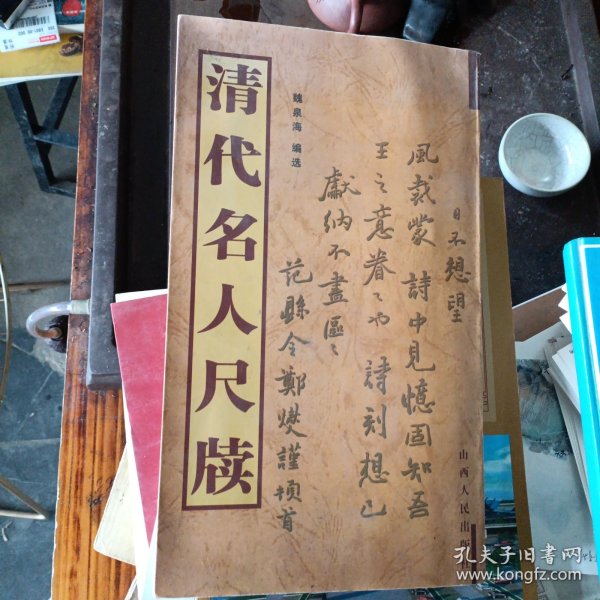 清代名人尺牍
魏泉海 编选
日不想望
風裁蒙 詩中見憶固知吾
王之意眷〻也 詩刻想已
獻納不盡區〻
范縣令鄭燮謹頓首
山西人民出版
孔夫子旧书网
www.kongfz.com